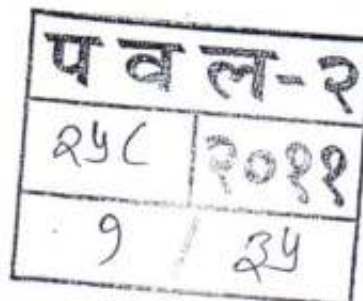 पवल-२
२५८ २०११
१ / ३५